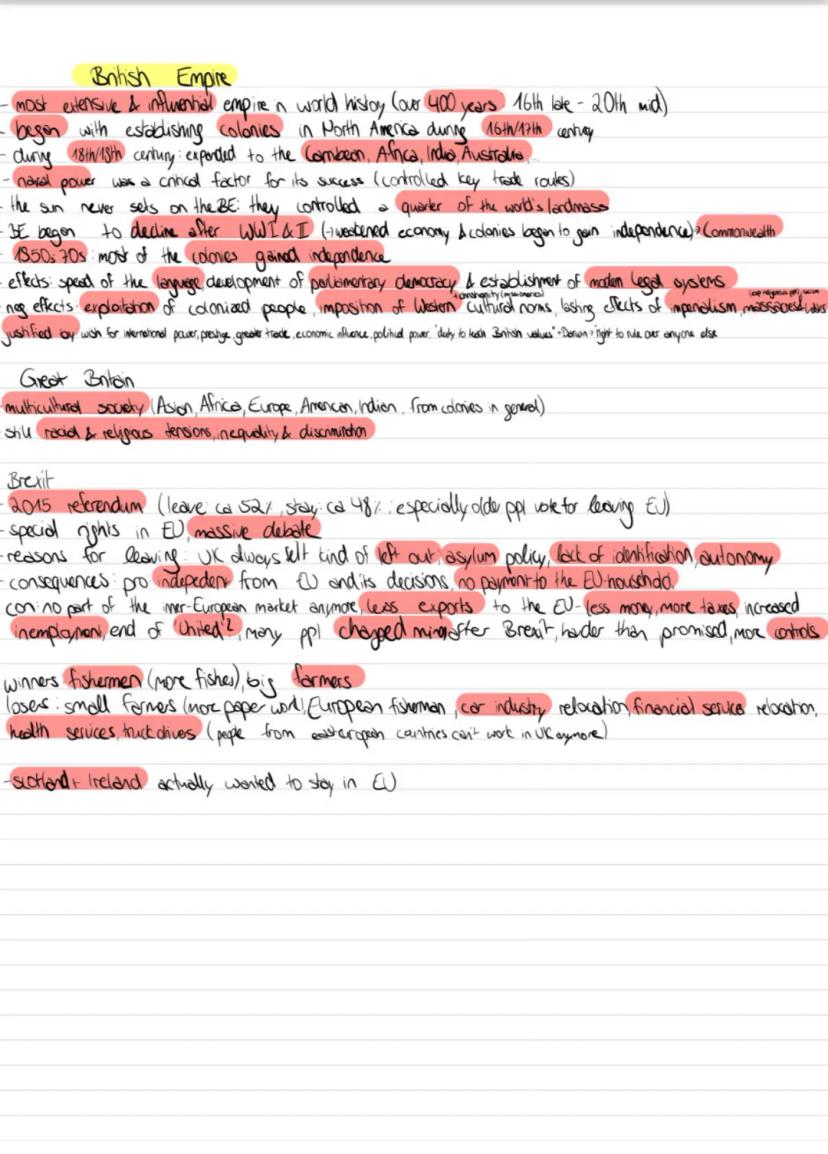 British Empire
- most extensive & influential empire n world history (over 400 years: 16th late - 20th mid)
- began with establishing colonies in North America during 16th/17th century
- during 18th/19th century: expanded to the Carribean, Africa, India, Australia
- naval power was a critical factor for its success (controlled key trade routes)
- the sun never sets on the BE: they controlled a quarter of the world's landmass
- BE began to decline after WWI & II (→ weakened economy & colonies began to gain independence) → Commonwealth
- 1950s-70s: most of the colonies gained independence
- effects: spead of the language, development of parliamentary democracy & establishment of modern legal systems
+ christianity (missionaries)
- neg effects: exploitation of colonized people, imposition of Western cultural norms, lasting effects of imperialism, massacres
justified by wish for international power, prestige, greater trade, economic influence, political power, "duty to teach British values" - Darwin → right to rule over anyone else
Great Britain
multicultural society (Asian, Africa, Europe, American, Indien, from colonies in general)
still racial & religious tensions, inequality & discrimination
Brexit
- 2015 referendum (leave: ca 52%, stay: ca 48%; especially older ppl vote for leaving EU)
- special rights in EU, massive debate
- reasons for leaving: UK always felt kind of left out, asylum policy, lack of identification, autonomy
- consequences: pro: indepedent from EU and its decisions, no payment to the EU-household,
con: no part of the inner-European market anymore, less exports to the EU - less money, more taxes, increased
unemployment, end of "United"?, many ppl changed mind after Brexit, harder than promised, more controls
winners: fishermen (more fishes), big farmers
losers: small farmers (more paper work), European fisherman, car industry relocation, financial service relocation,
health services, truck drives (people from easteropean countries can't work in UK anymore)
- Scotland + Ireland actually wanted to stay in EU